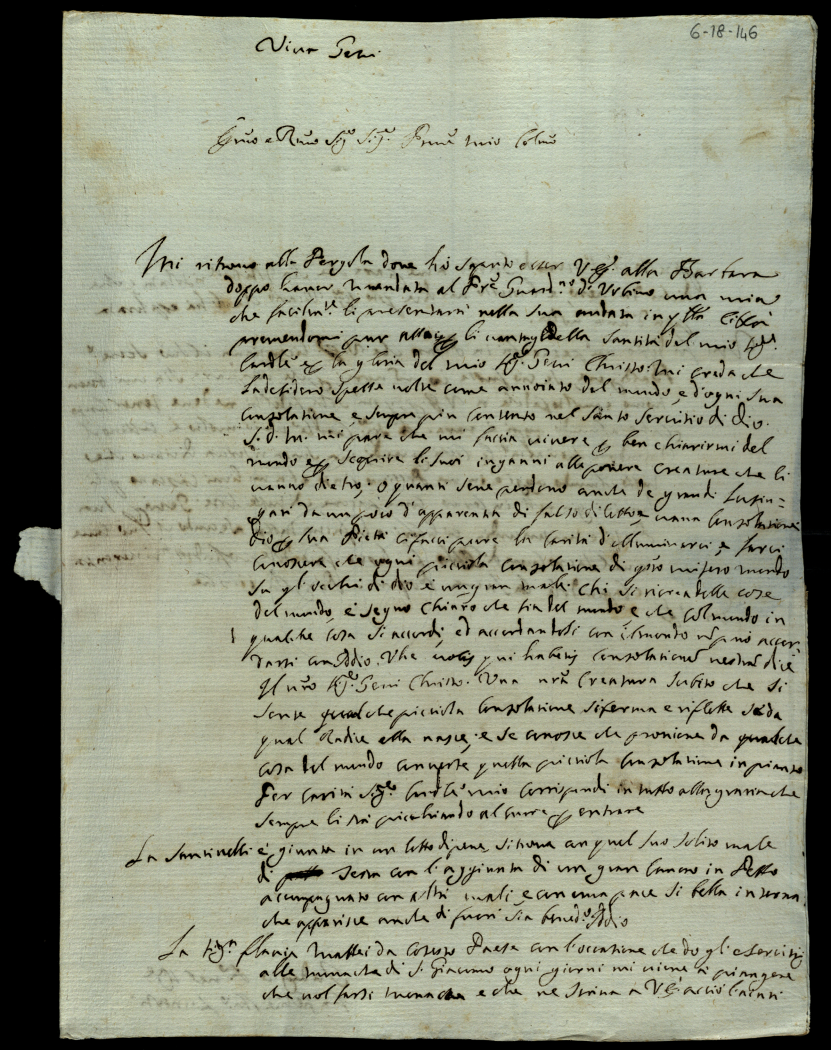 6-18-146
Viva Gesù
Emo e Rmo Sigr Sigr Prne mio Colmo
Mi ritrovo alla Pergola dove hò saputo esser V. Em. alla Barbara
doppo haver mandata al Pre Guardno d'Urbino una mia
che facilmte li presentarà nella sua andata in qsta Città
premendomi pur della santità del mio Sigr
Cardle e la gloria del mio Sigr Giesù Christo. Mi creda che
la desidero spesse volte come annoiato del mondo, e d'ogni sua
consolatione, e sempre più contento nel santo servitio di Dio.
S. D. M. mi pare che mi faccia vivere ben chiarirmi del
mondo e scoprire li suoi inganni alle povere creature che li
vanno dietro; o quanti sene perdono anche de grandi lusin=
gati da un poco d'apparenza di falso diletto e vana consolatione
Dio sua Pietà ci facci pure la carità d'illuminarci, e farci
conoscere che ogni picciola consolatione di qsto misero mondo
su gl'occhi di Dio è un gran male. Chi si ricrea delle cose
del mondo, è segno chiaro che sia del mondo e che col mondo in
qualche cosa si accordi, ed accordandosi con il mondo nō può accor
darsi con Iddio. Vhe vobis qui habetis consolationē nestrā dice
il nro Sigr Giesù Christo. Una vera Creatura subito che si
sente qualche picciola consolatione si ferma e riflette da
qual Radice ella nasce, e se conosce che proviene da qualche
cosa del mondo converte quella picciola consolatione in pianto
Per carità Sigr Cardle mio corrispondi in tutto alla gratia che
sempre li stà picchiando al cuore entrare
La Santinelli è giunta in un letto di pene, si trova con quel suo solito male
di testa con l'aggiunta di un gran cancro in Petto
accompagnato con altri mali, e con una pace sì bella interna
che apparisce anche di fuori sia benedo Iddio
La Sigra Flavia Mattei da codesto Paese con l'occatione che do gl'esercitij
alle monache di S. Giacomo ogni giorni mi viene à piangere
che vol farsi monacha e che ne scriva à V. Em. acciò l'aiuti